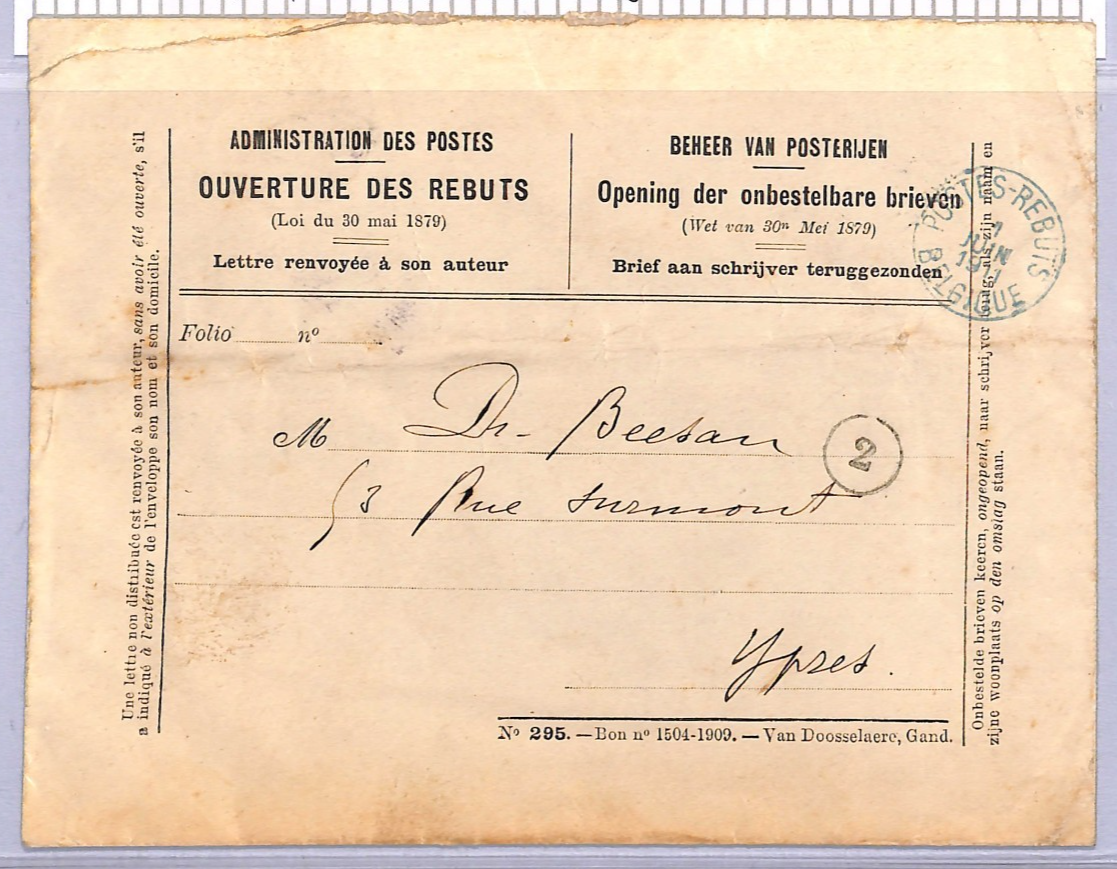 ADMINISTRATION DES POSTES
OUVERTURE DES REBUTS
(Loi du 30 mai 1879)
Lettre renvoyée à son auteur
BEHEER VAN POSTERIJEN
Opening der onbestelbare brieven
(Wet van 30ⁿ Mei 1879)
Brief aan schrijver teruggezonden
POSTES-REBUTS
1
JUIN
1911
BELGIQUE
Folio nº
M Dr. Beesau
53 Rue Surmont
2
Ypres.
Nº 295. — Bon nº 1504-1909. — Van Doosselaere, Gand.
Une lettre non distribuée est renvoyée à son auteur, sans avoir été ouverte, s'il
a indiqué à l'extérieur de l'enveloppe son nom et son domicile.
Onbestelde brieven keeren, ongeopend, naar schrijver terug, als zijn naam en
zijne woonplaats op den omslag staan.